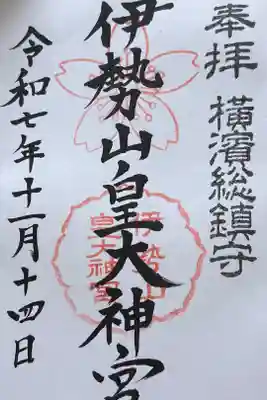 奉拝 横濱総鎮守
伊勢山皇大神宮
伊勢山
皇大神宮
令和七年十一月十四日